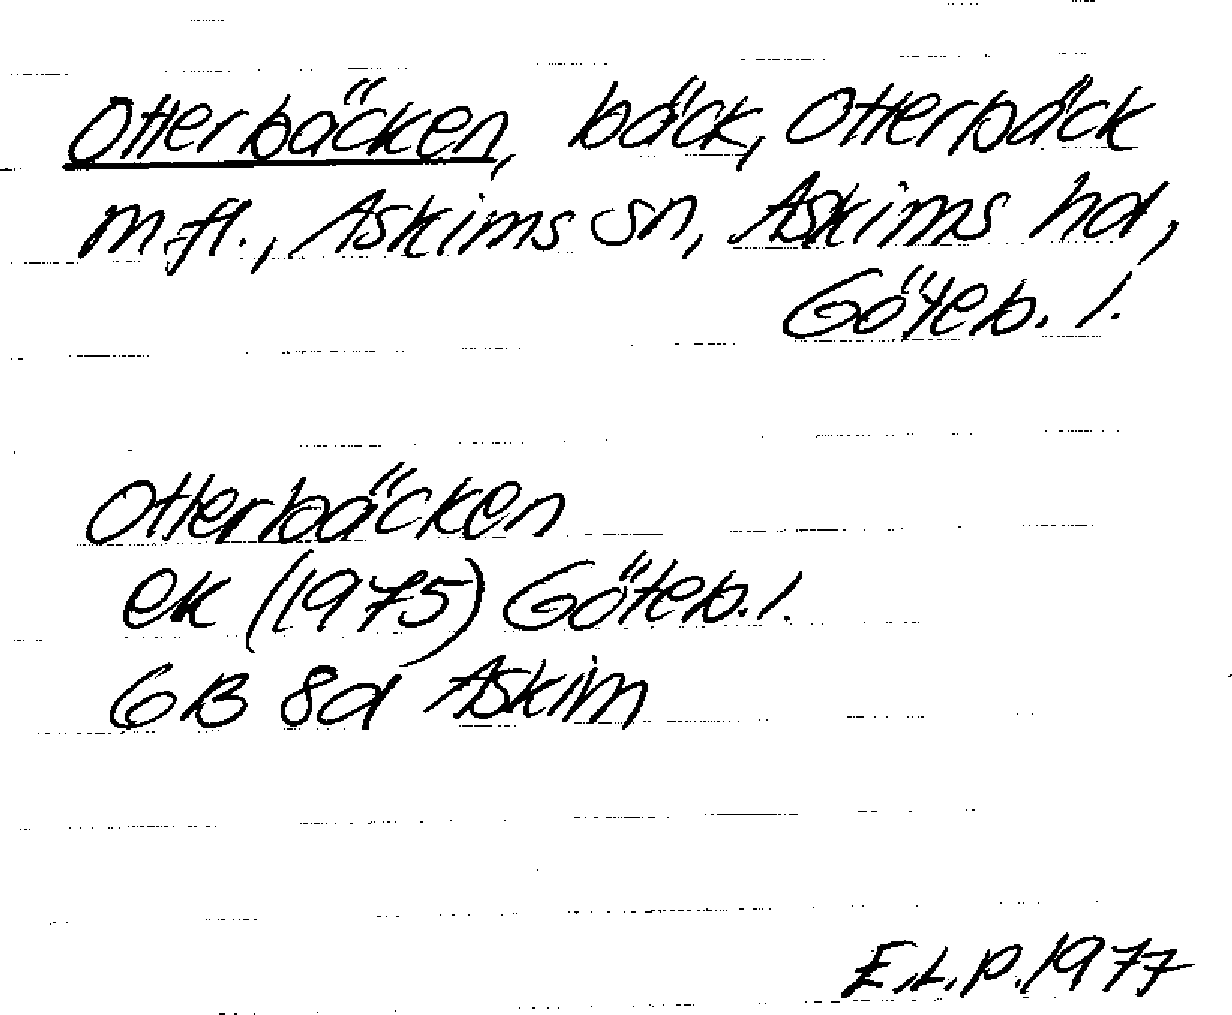 Otterbäcken, bäck, Otterbäck
m.fl., Askims sn, Askims hd,
Göteb. l.
Otterbäcken
ek (1975) Göteb. l.
6B 8d Askim
E.L.P. 1977